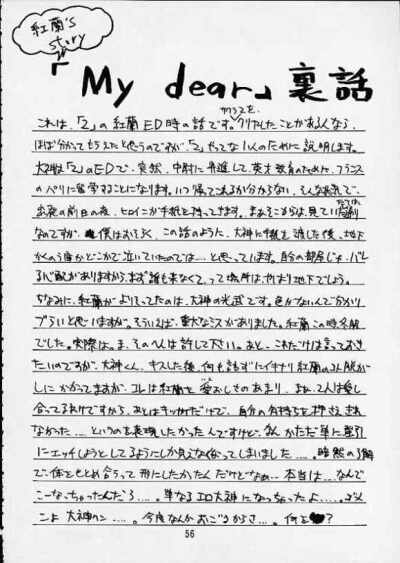 紅蘭's
story
「My dear」裏話
これは、「2」の紅蘭ED時の話です。クリアしたことがある人なら、
ほぼ分かってもらえたと思うのですが、「2」やってない人のために説明します。
大神は「2」のEDで、突然、中尉に昇進して、英才教育のため、フランス
のパリに留学することになります。いつ帰って来るか分からない、そんな状況で、
出発の前日の夜、ヒロインが手紙を持ってきます。まあそこからは、見ていた通り
なのですが、僕はおそらく、この話のように、大神に手紙を渡した後、地下
かどこかで泣いていたのでは…と思っています。自分の部屋じゃ、バレ
る心配がありますから、まず誰も来なくて、って場所は、やはり地下でしょう。
ちなみに、紅蘭がよりそってたのは、大神の光武です。色がないんで分かり
づらいと思いますが。そういえば、重大なミスがありました。紅蘭この時冬服
でした。実際は。ま、そのへんは許して下さい。あと、これだけは言っておき
たいのですが、大神くん、キスした後、何も話さずにイキナリ紅蘭のコト脱が
しにかかってますが、コレは紅蘭を愛おしむのあまり、まぁ、2人は愛し
合ってるわけですから、あとはキッカケだけで、自分の気持ちを押さえきれ
なかった…というのを表現したかったんですけど、なんかただ単に強引
にエッチしようとしてるようにしか見えなくなってしまいました…。暗黙の了解
で、体をもとめ合うって形にしたかったんだけどなぁ…本当は…。なんで
こーなっちゃったんだろ…。単なるエロ大神になっちゃったよ…。
大神クン…。今度なんかおごるからさ…。何を?
56